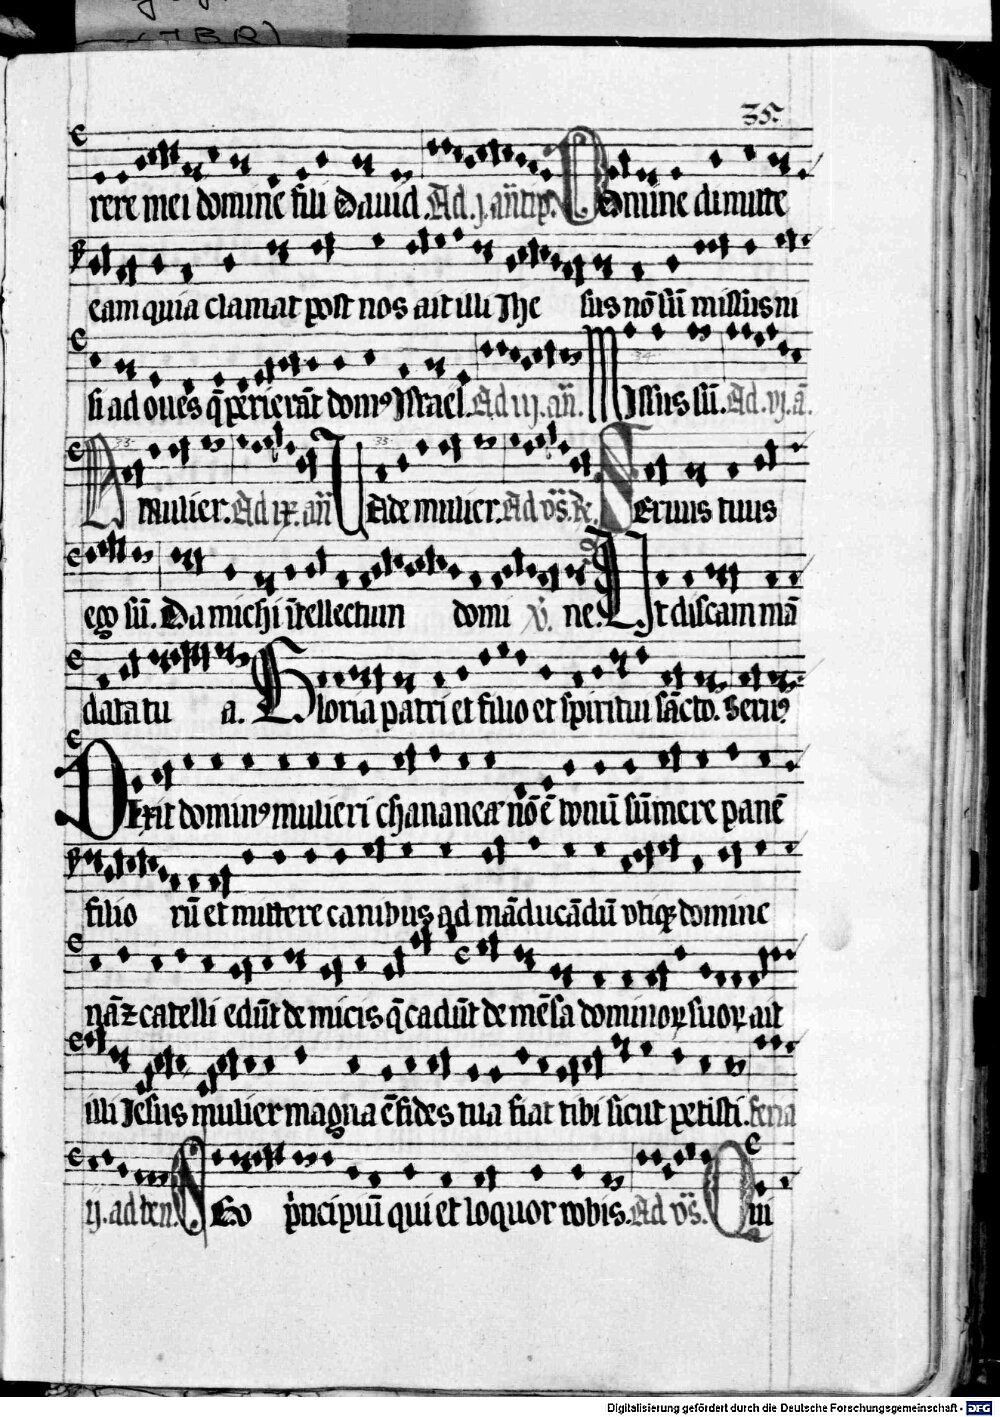 (IBR)
35.
rere mei domine fili Dauid. Ad .j. añtip. Domine dimitte
eam quia clamat post nos ait illi Jhe sus nō sū missus ni
si ad oues q̄ perierāt domꝰ Israel. Ad iij. añ. Missus sū. Ad .vj. ā.
33. 33. 34.
A mulier. Ad ix. añ Uade mulier. Ad vs̄. ℟. Seruus tuus
ego sū. Da michi ītellectum domi v̇. ne. Ut discam mā
data tu a. Gloria patri et filio et spiritui sācto. Seruꝰ
Dixit dominꝰ mulieri chananeæ nō ē bonū sūmere panē
filio rū et mittere canibus ad māducādū vtiqꝫ domine
nāꝫ catelli edūt de micis q̄ cadūt de mēsa dominoꝝ suoꝝ ait
illi Jesus mulier magna ē fides tua fiat tibi sicut petisti. feria
ij. ad ben. Ego p̍ncipiū qui et loquor vobis. Ad vs̄. Qui
Digitalisierung gefördert durch die Deutsche Forschungsgemeinschaft - DFG